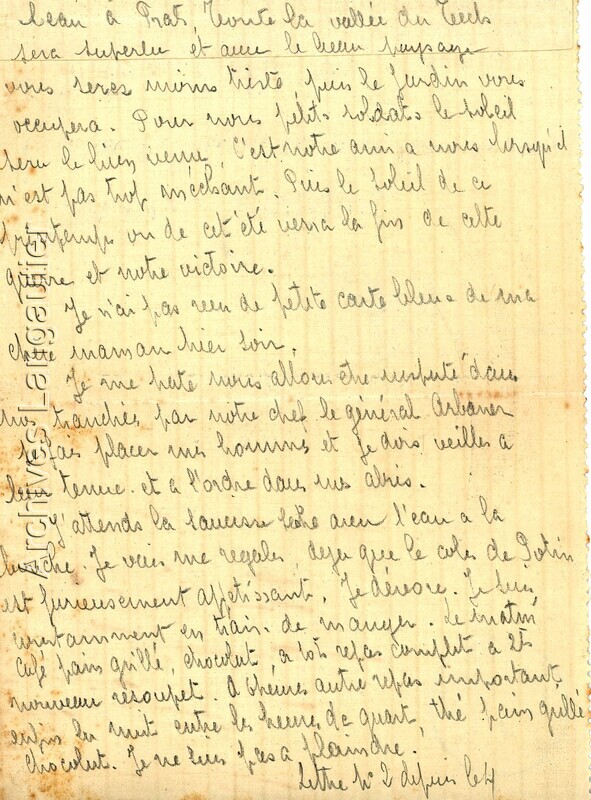 beau à Prats, toute la vallée du Tech
sera superbe et avec le beau paysage
vous serez moins triste, puis le jardin vous
occupera. Pour nous petits soldats le soleil
sera le bien venu, c'est notre ami a nous lorsqu'il
n'est pas trop méchant. Puis le soleil de ce
printemps ou de cet été verra la fin de cette
guerre et notre victoire.
Je n'ai pas reçu de petite carte bleue de ma
chère maman hier soir.
Je me hate nous allons être inspecté dans
nos tranchées par notre chef le général
Je fais placer mes hommes et Je dois veiller a
leur tenue et a l'ordre dans nos abris.
J'attends la saucisse sèche avec l'eau a la
bouche. Je vais me regaler, deja que le colis de Potin
est furieusement appétissant. Je dévore. Je suis
constamment en train de manger. Le matin
café pain grillé, chocolat, a 10h repas complet a 2h
nouveau resoupet. A 6 heures autre repas important
enfin la nuit entre les heures de quart, thé pain grillé
chocolat. Je ne suis pas a plaindre.
Lettre n° 2 depuis le 4
Archives Langautier